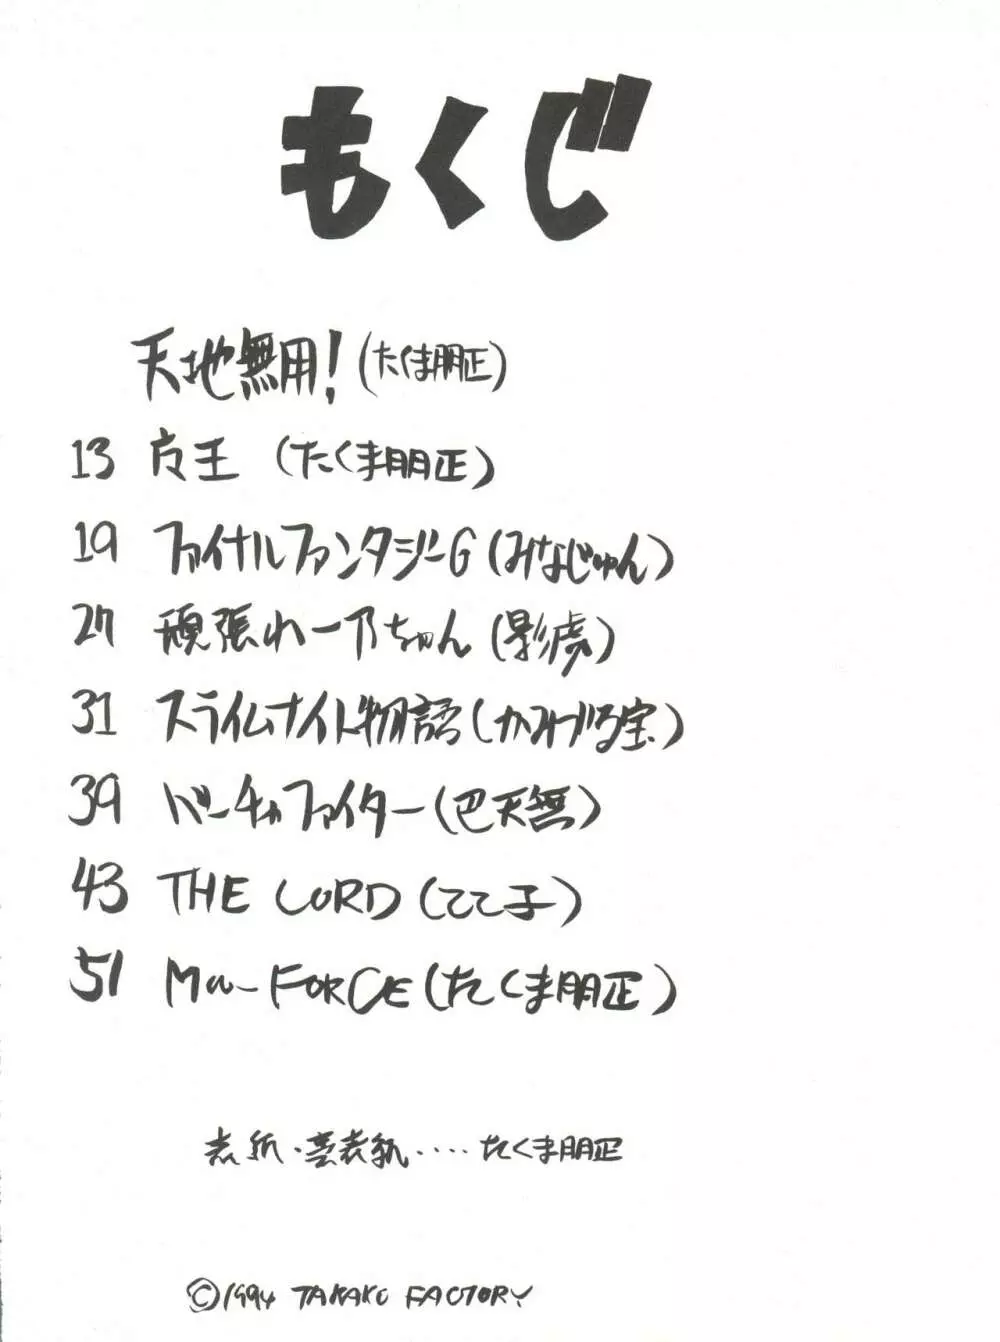 もくじ
天地無用!(たくま朋正)
13 女王 (たくま朋正)
19 ファイナルファンタジーG(みなじゅん)
27 頑張れ一乃ちゃん(影虎)
31 スライムナイト物語(かみづる宝)
39 バーチャファイター(巴天無)
43 THE LORD(てて子)
51 Mu-FORCE(たくま朋正)
表紙・裏表紙‥‥たくま朋正
©1994 TAKAKO FACTORY